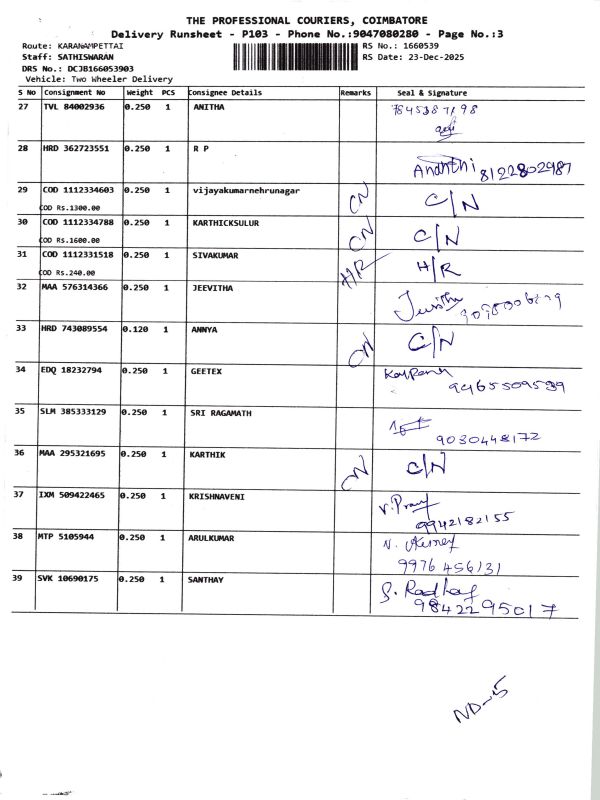 THE PROFESSIONAL COURIERS, COIMBATORE
Delivery Runsheet - P103 - Phone No.:9047080280 - Page No.:3
Route: KARANAMPETTAI RS No.: 1660539
Staff: SATHISWARAN RS Date: 23-Dec-2025
DRS No.: DCJB166053903
Vehicle: Two Wheeler Delivery
S No Consignment No Weight PCS Consignee Details Remarks Seal & Signature
27 TVL 84002936 0.250 1 ANITHA
28 HRD 362723551 0.250 1 R P
Ananthi 8122802987
29 COD 1112334603 0.250 1 vijayakumarnehrunagar CN C/N
COD Rs.1300.00
30 COD 1112334788 0.250 1 KARTHICKSULUR CN C/N
COD Rs.1600.00
31 COD 1112331518 0.250 1 SIVAKUMAR H/R H/R
COD Rs.240.00
32 MAA 576314366 0.250 1 JEEVITHA
33 HRD 743089554 0.120 1 ANNYA CN C/N
34 EDQ 18232794 0.250 1 GEETEX
9465509539
35 SLM 385333129 0.250 1 SRI RAGAMATH
9030448172
36 MAA 295321695 0.250 1 KARTHIK CN C/N
37 IXM 509422465 0.250 1 KRISHNAVENI
9942182155
38 MTP 5105944 0.250 1 ARULKUMAR
9976 456131
39 SVK 10690175 0.250 1 SANTHAY
9842295017
ND-5